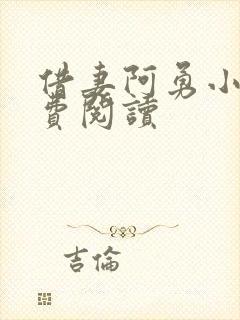 借妻阿勇小
費閱讀
吉倫